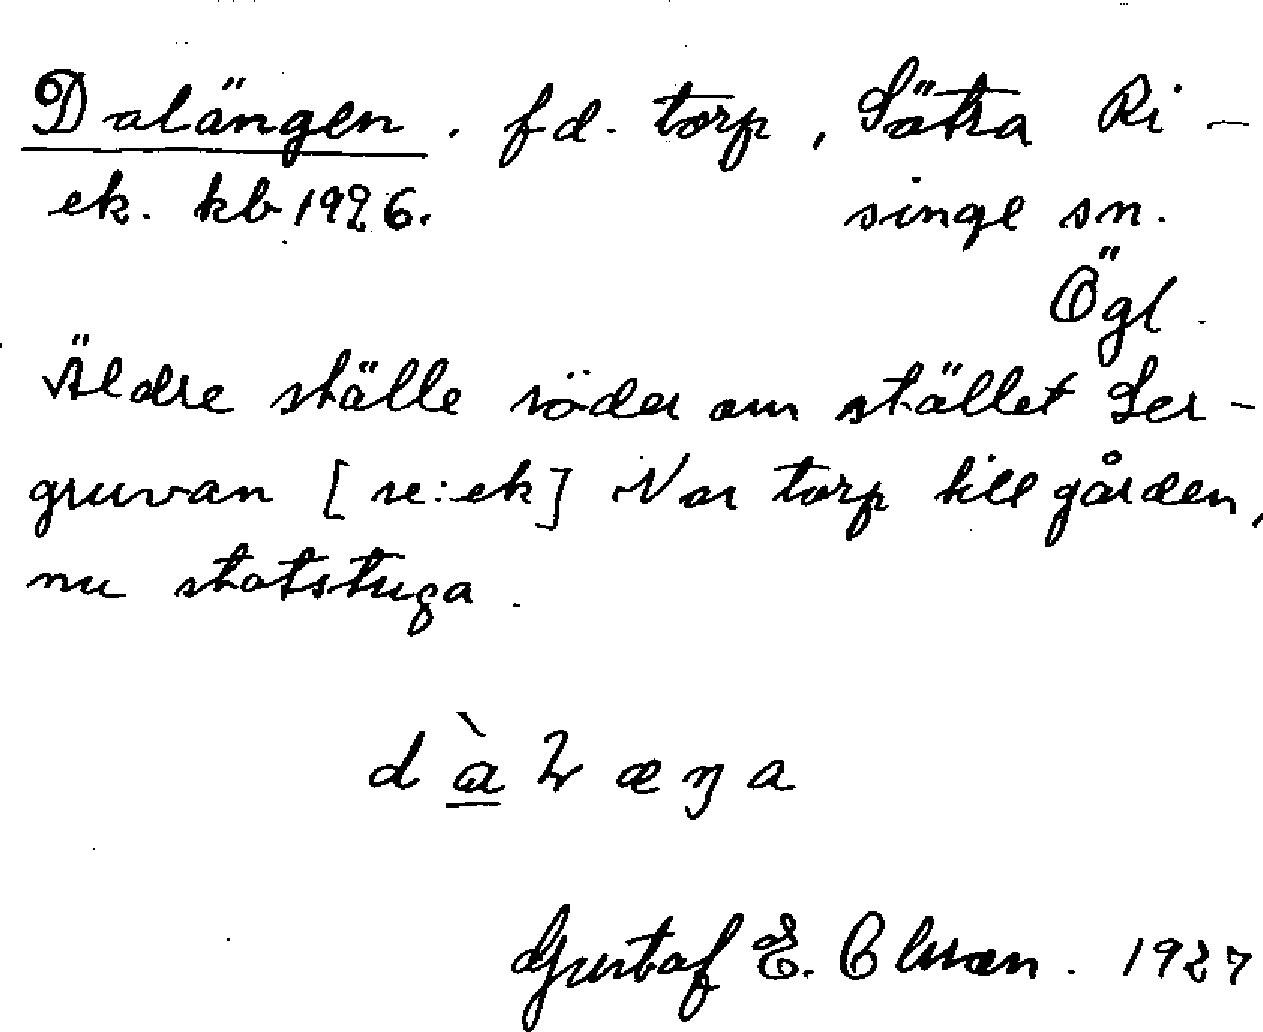 Dalängen. fd. torp, Sätra Ri-
ek. kb 1926. singe sn.
Ögl.
Äldre ställe söder om stället Ler-
gruvan [se: ek] Var torp till gården,
nu statstuga.
dàlæŋa
Gustaf E. Olsson. 1927